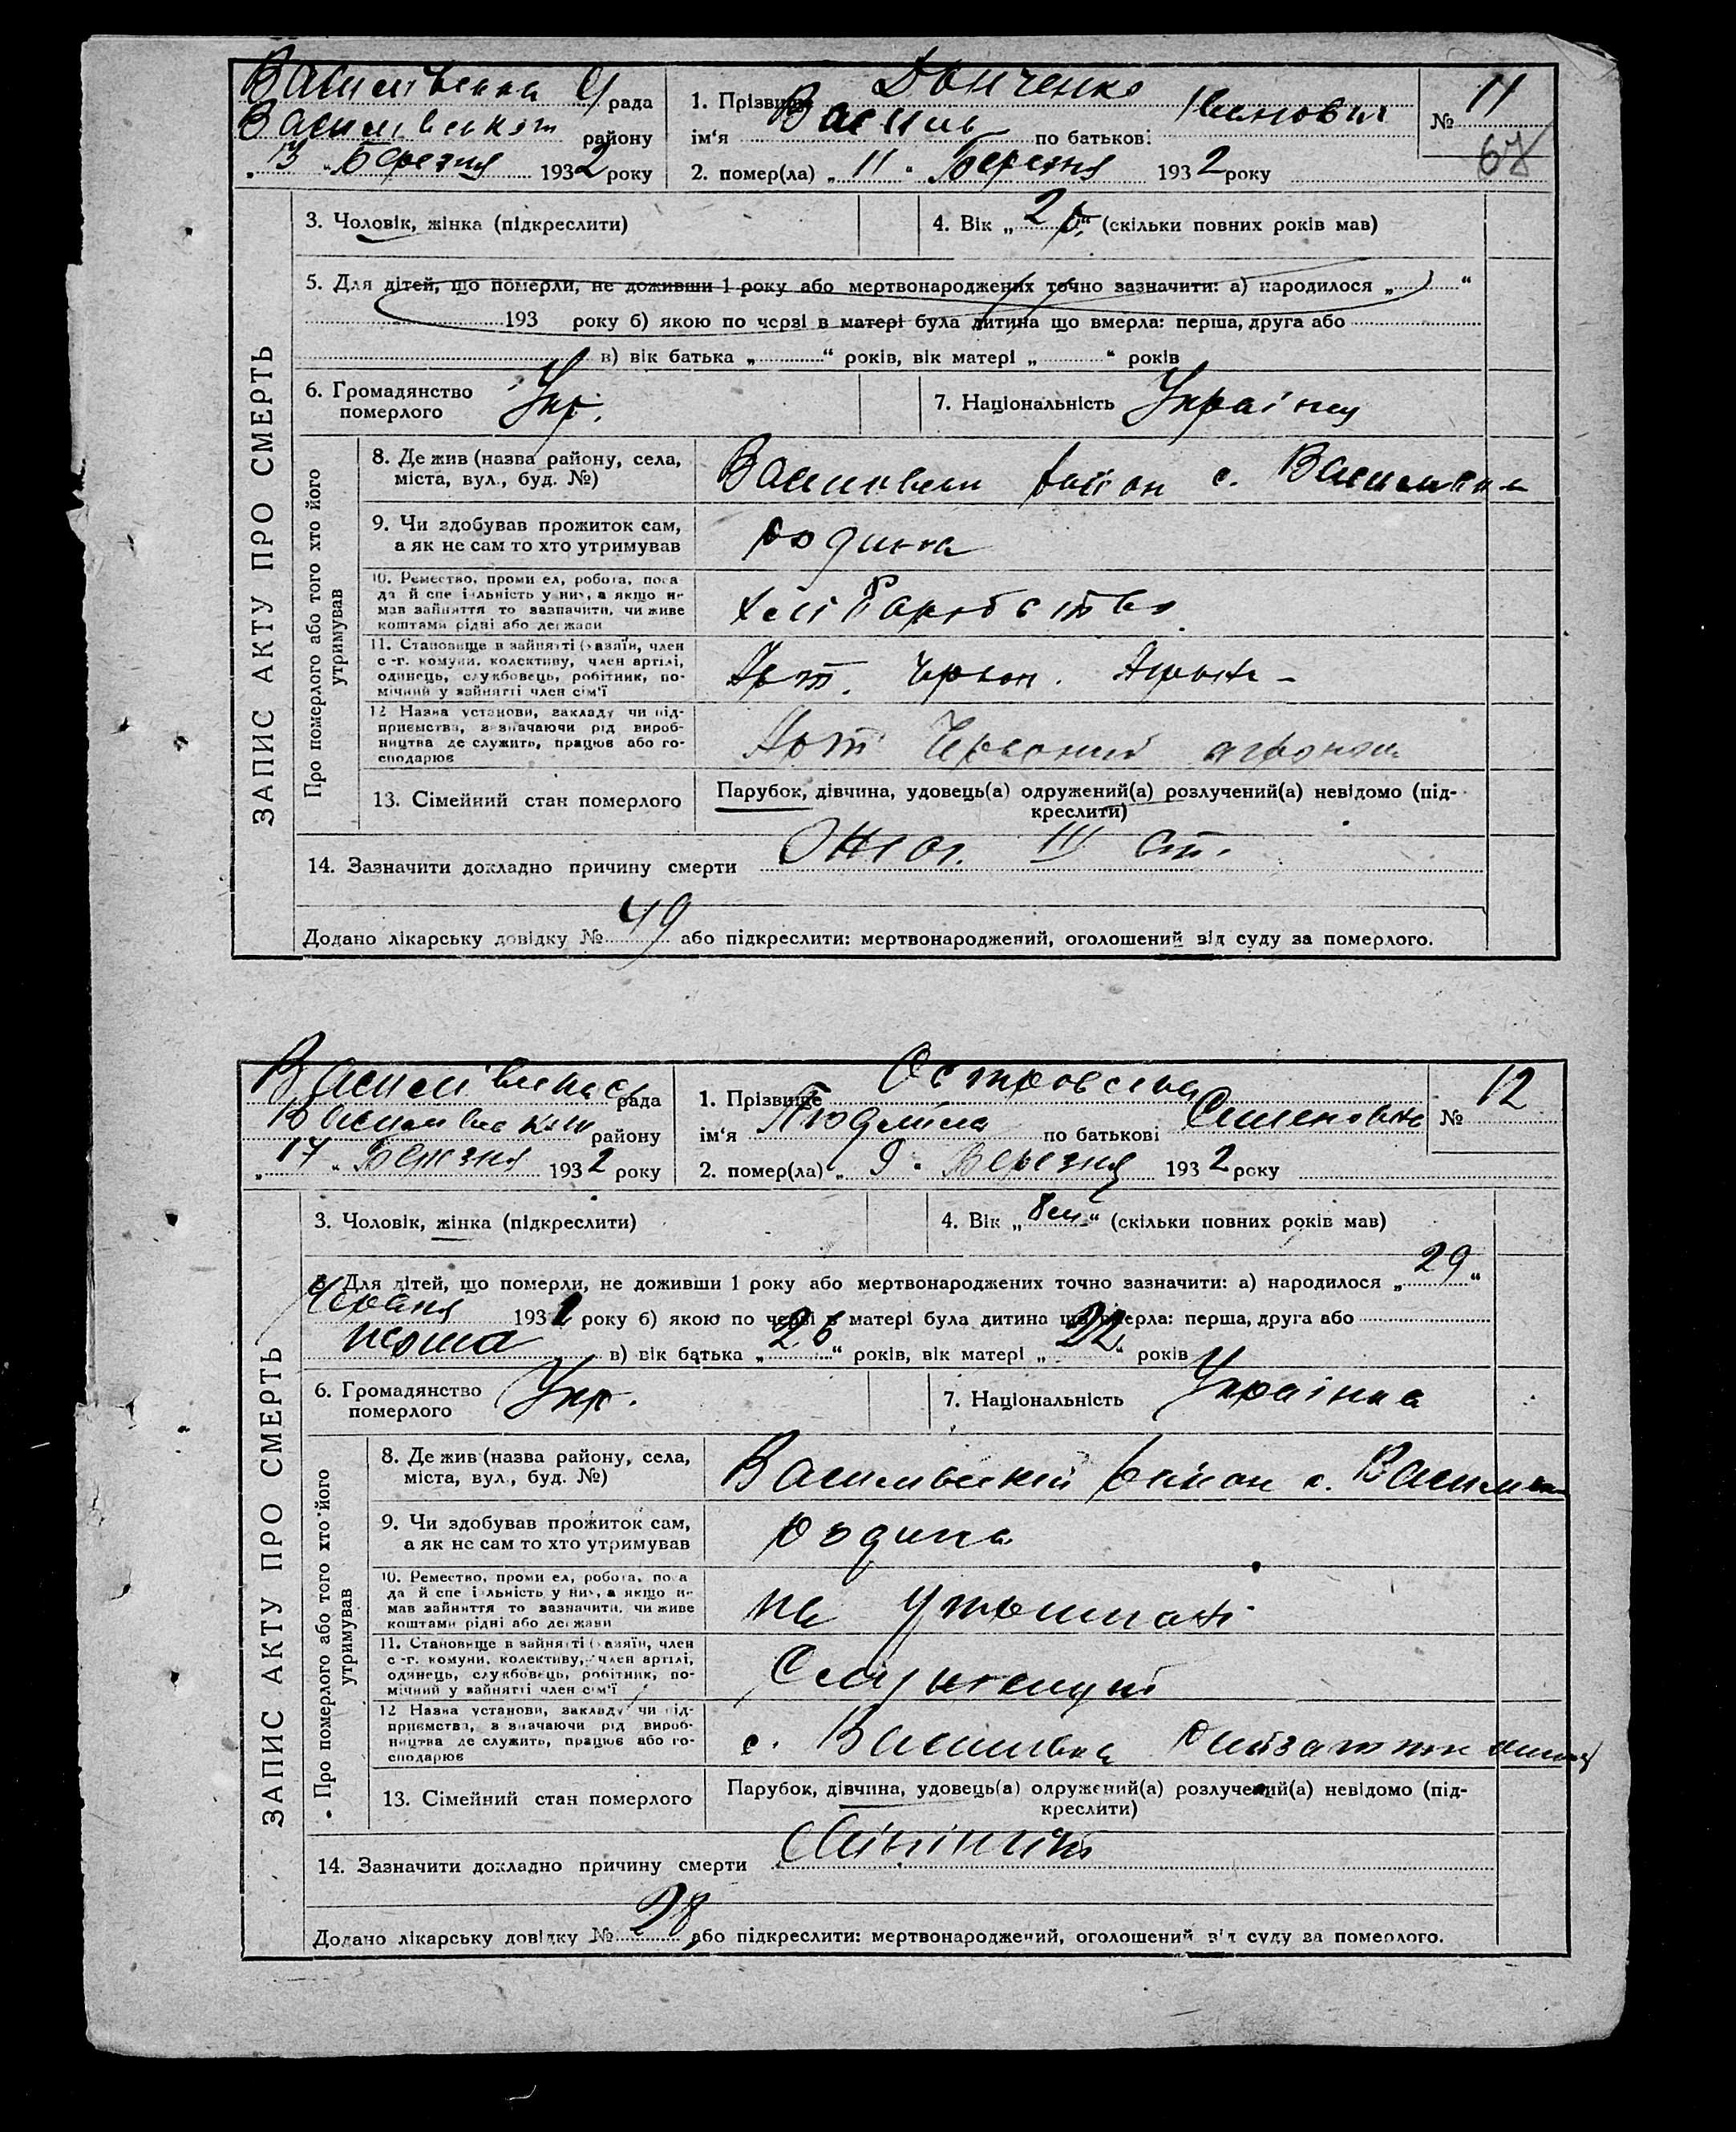 Василівська с/рада
Василівського району
„13“ Березня 1932 року
1. Прізвище Донченко
ім‘я Василь по батькові Іванович
2. помер(ла) „11“ Березня 1932 року
№ 11
67
ЗАПИС АКТУ ПРО СМЕРТЬ
3. Чоловік, жінка (підкреслити)
4. Вік „2 р.“ (скільки повних років мав)
5. Для дітей, що померли, не доживши 1 року або мертвонароджених точно зазначити: а) народилося „ “
193 року б) якою по черзі в матері була дитина що вмерла: перша, друга або
в) вік батька „ “ років, вік матері „ “ років
6. Громадянство померлого Укр.
7. Національність Українц
Про померлого або того хто його утримував
8. Де жив (назва району, села,
міста, вул., буд. №)
район с. Василівка
9. Чи здобував прожиток сам,
а як не сам то хто утримував
родина
10. Ремество, промисел, робота, поса
да й спеціяльність у них, а якщо не
мав зайняття то зазначити, чи живе
коштами рідні або держави
хліборобство
11. Становище в зайнятті (хазяїн, член
с.-г. комуни, колективу, член артілі,
одинець, службовець, робітник, по-
мічний у зайнятті член сім‘ї
Арт. Червон.
12 Назва установи, закладу чи під-
приємства, зазначаючи рід вироб-
ництва де служить, працює або го-
сподарює
Арт Червоний агроном
13. Сімейний стан померлого
Парубок, дівчина, удовець(а) одружений(а) розлучений(а) невідомо (під-
креслити)
14. Зазначити докладно причину смерти III ст.
Додано лікарську довідку № 49 або підкреслити: мертвонароджений, оголошений від суду за померлого.
Василівська с рада
Василівського району
„17“ Березня 1932 року
1. Прізвище Островська
ім‘я Людміла по батькові Семеновна
2. помер(ла) „9“ Березня 1932 року
№ 12
ЗАПИС АКТУ ПРО СМЕРТЬ
3. Чоловік, жінка (підкреслити)
4. Вік „8 м“ (скільки повних років мав)
5. Для дітей, що померли, не доживши 1 року або мертвонароджених точно зазначити: а) народилося „29“
Червня 1931 року б) якою по черзі в матері була дитина що вмерла: перша, друга або
перша в) вік батька „26“ років, вік матері „22“ років
6. Громадянство померлого Укр.
7. Національність Українка
Про померлого або того хто його утримував
8. Де жив (назва району, села,
міста, вул., буд. №)
Василівський район с. Василівка
9. Чи здобував прожиток сам,
а як не сам то хто утримував
родина
10. Ремество, промисел, робота, поса
да й спеціяльність у них, а якщо не
мав зайняття то зазначити, чи живе
коштами рідні або держави
на утриманні
11. Становище в зайнятті (хазяїн, член
с.-г. комуни, колективу, член артілі,
одинець, службовець, робітник, по-
мічний у зайнятті член сім‘ї
12 Назва установи, закладу чи під-
приємства, зазначаючи рід вироб-
ництва де служить, працює або го-
сподарює
с. Василівка
13. Сімейний стан померлого
Парубок, дівчина, удовець(а) одружений(а) розлучений(а) невідомо (під-
креслити)
14. Зазначити докладно причину смерти
Додано лікарську довідку № 98 або підкреслити: мертвонароджений, оголошений від суду за померлого.